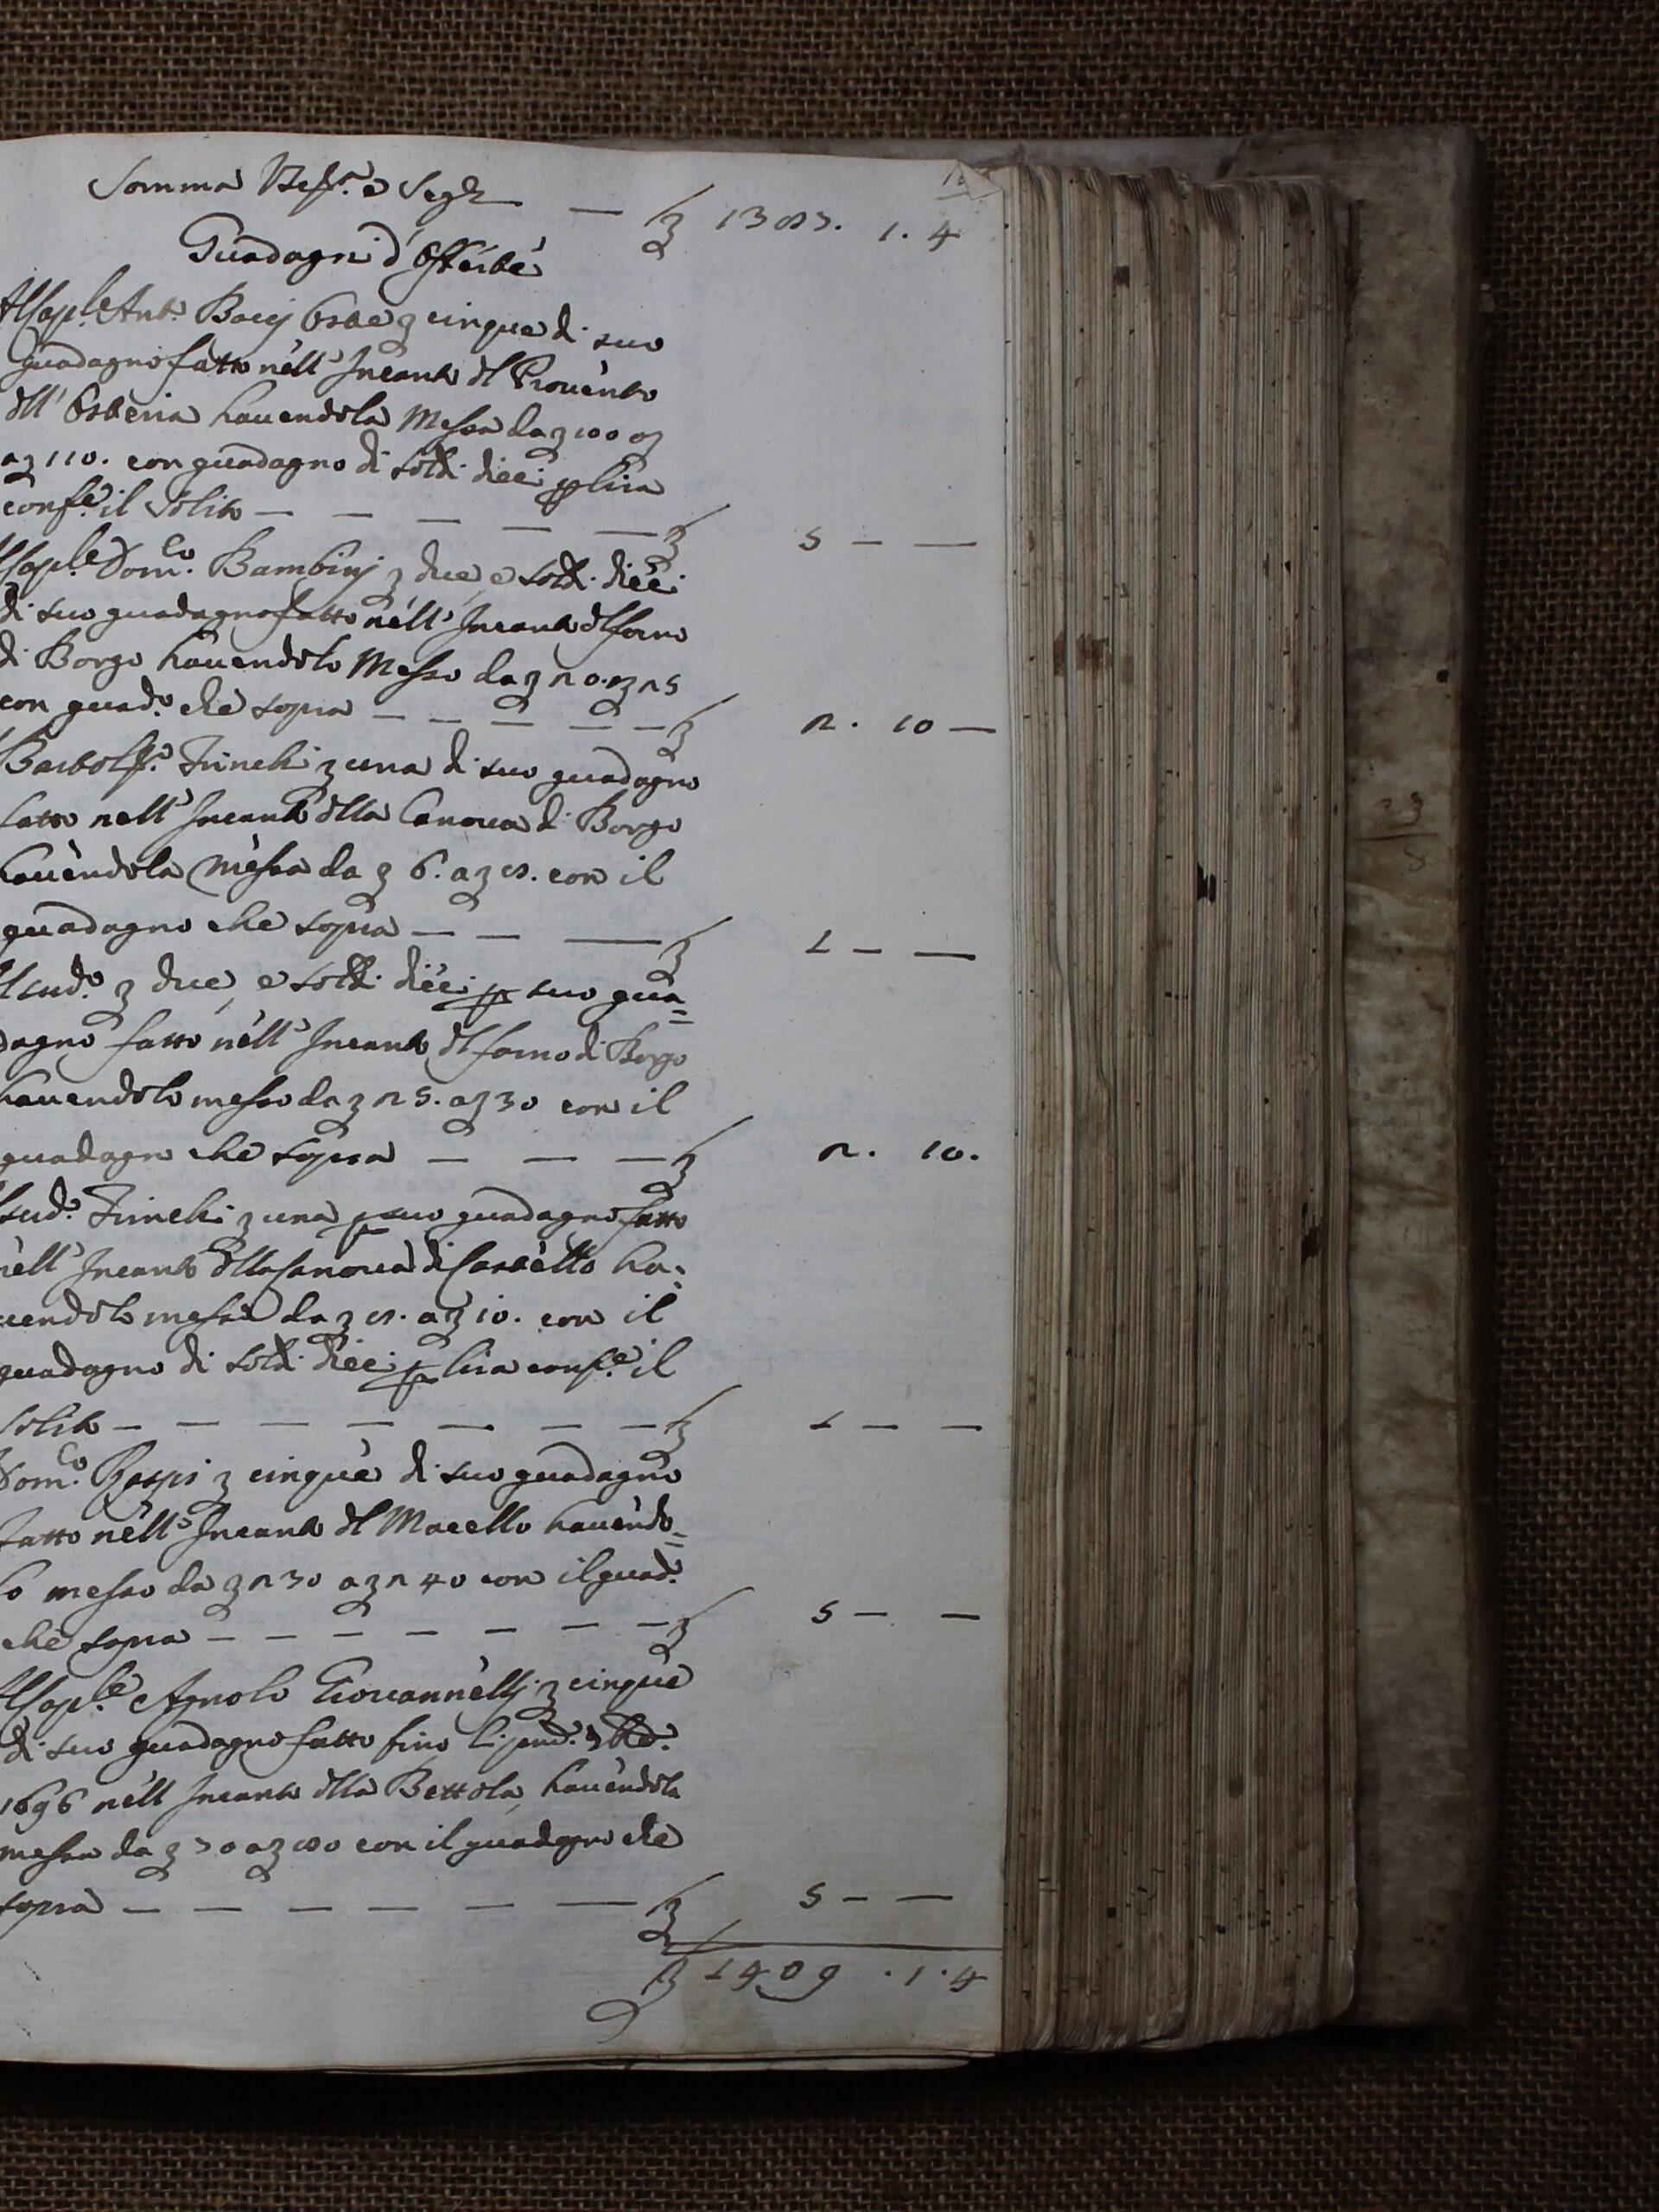 Somma Retr.a e Segu — ℥ 1387. 1. 4
Guadagni d'Offerte
Al Cap.le Ant.o Bacij Oste ℥ cinque di suo
guadagno fatto nell' Incanto dl Provento
dll' Osteria havendola Messa da ℥ 100
a ℥ 110. con guadagno di soldi dieci p lira
conf.e il solito — — — — — ℥ 5 — —
Cap.le Dom.co Bambinj ℥ due, e soldi dieci
di suo guadagno fatto nell' Incanto dl forno
di Borgo havendolo Messo da ℥ 20. a ℥ 25
con guad.o che sopra — — — — — ℥ 2. 10 —
Trinchi ℥ una di suo guadagno
fatto nell' Incanto dlla Canova di Borgo
havendola Messa da ℥ 6. a ℥ 8. con il
guadagno che sopra — — — ℥ 1 — —
sud.o ℥ due, e soldi dieci p suo gua=
dagno fatto nell' Incanto dl forno di Borgo
havendolo messo da ℥ 25. a ℥ 30 con il
guadagno che sopra — — — ℥ 2. 10.
sud.o Trinchi ℥ una p suo guadagno fatto
nell' Incanto dlla Canova di Castello ha:
vendola messa da ℥ 8. a ℥ 10. con il
guadagno di soldi dieci p lira conf.e il
solito — — — — — — — ℥ 1 — —
Dom.co Raspi ℥ cinque di suo guadagno
fatto nell' Incanto dl Macello havendo=
lo messo da ℥ 230 a ℥ 240 con il guad.o
che sopra — — — — — — — ℥ 5 — —
Al Cap.le Agnolo Giovannellj ℥ cinque
di suo guadagno fatto fino li 7bre.
1696 nell Incanto dlla Bettola, havendola
messa da ℥ 70 a ℥ 80 con il guadagno che
sopra — — — — — — ℥ 5 — —
℥ 1409 . 1 . 4